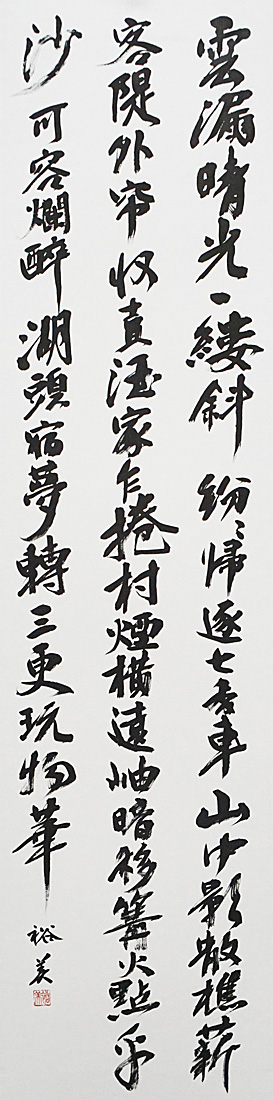 雲漏晴光一縷斜紛〻歸逐七香車山中影散樵薪
客隄外帘收賣酒家乍捲村煙橫遠岫暗移篝火點平
沙可容爛醉湖頭宿夢轉三更玩物華
裕美